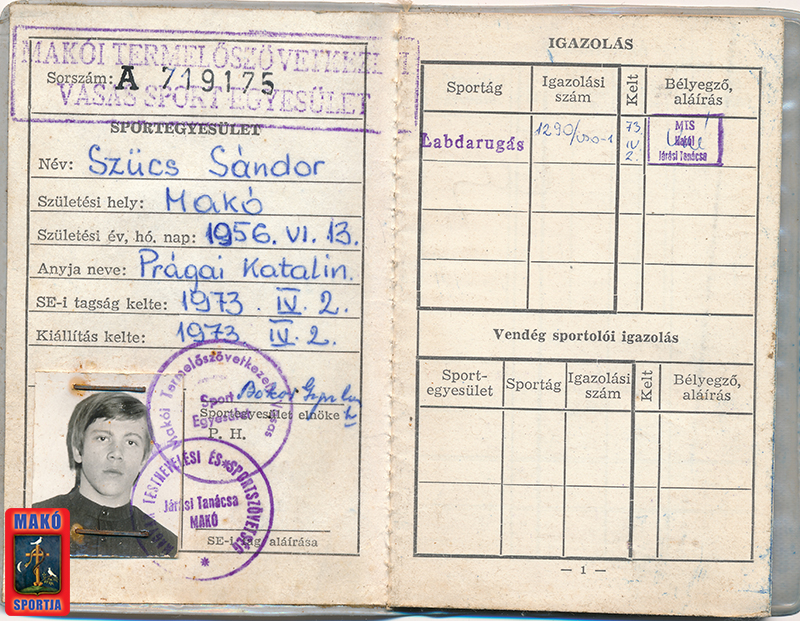 MAKÓI TERMELŐSZÖVETKEZETI
Sorszám: A 719175
VASAS SPORT EGYESÜLET
SPORTEGYESÜLET
Név: Szücs Sándor
Születési hely: Makó
Születési év, hó, nap: 1956. VI. 13.
Anyja neve: Prágai Katalin.
SE-i tagság kelte: 1973. IV. 2.
Kiállítás kelte: 1973. IV. 2.
Makói Termelőszövetkezeti Vasas
Sport
Egyesület
Sportegyesület elnöke
P. H.
TESTNEVELÉSI ÉS SPORTSZÖVETSÉG
Járási Tanácsa
MAKÓ
*
SE-i tag aláírása
MAKÓ
SPORTJA
IGAZOLÁS
Sportág Igazolási szám Kelt Bélyegző, aláírás
Labdarugás 1290/uso-1 73. IV. 2. MTS
Makói
Járási Tanácsa
Vendég sportolói igazolás
Sport-egyesület Sportág Igazolási szám Kelt Bélyegző, aláírás
— 1 —